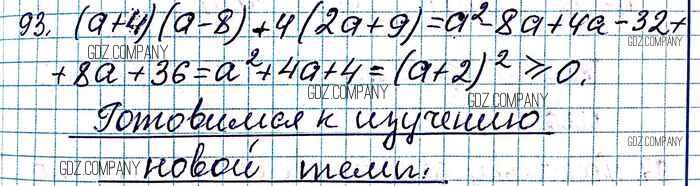 93. (a+4)(a-8)+4(2a+9)=a²-8a+4a-32+
+8a+36=a²+4a+4=(a+2)²⩾0.
Готовимся к изучению
новой темы.
GDZ.COMPANY
GDZ.COMPANY
GDZ.COMPANY
GDZ.COMPANY
GDZ.COMPANY
GDZ.COMPANY
GDZ.COMPANY